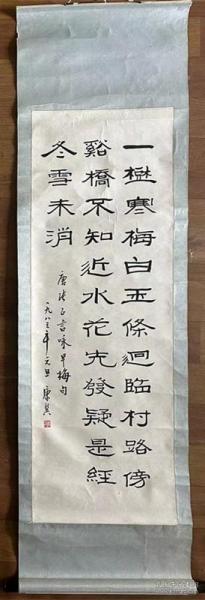 一樹寒梅白玉條迴臨村路傍
谿橋不知近水花先發疑是經
冬雪未消
唐張正言詠早梅句
一九八三年元旦康